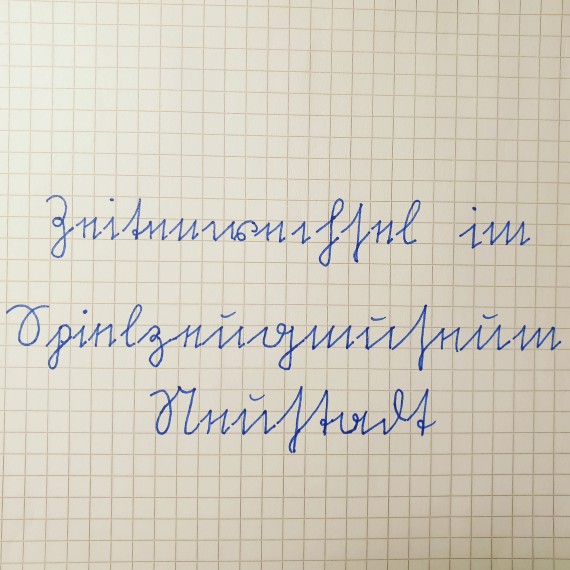 Zeitenwechsel im
Spielzeugmuseum
Neustadt